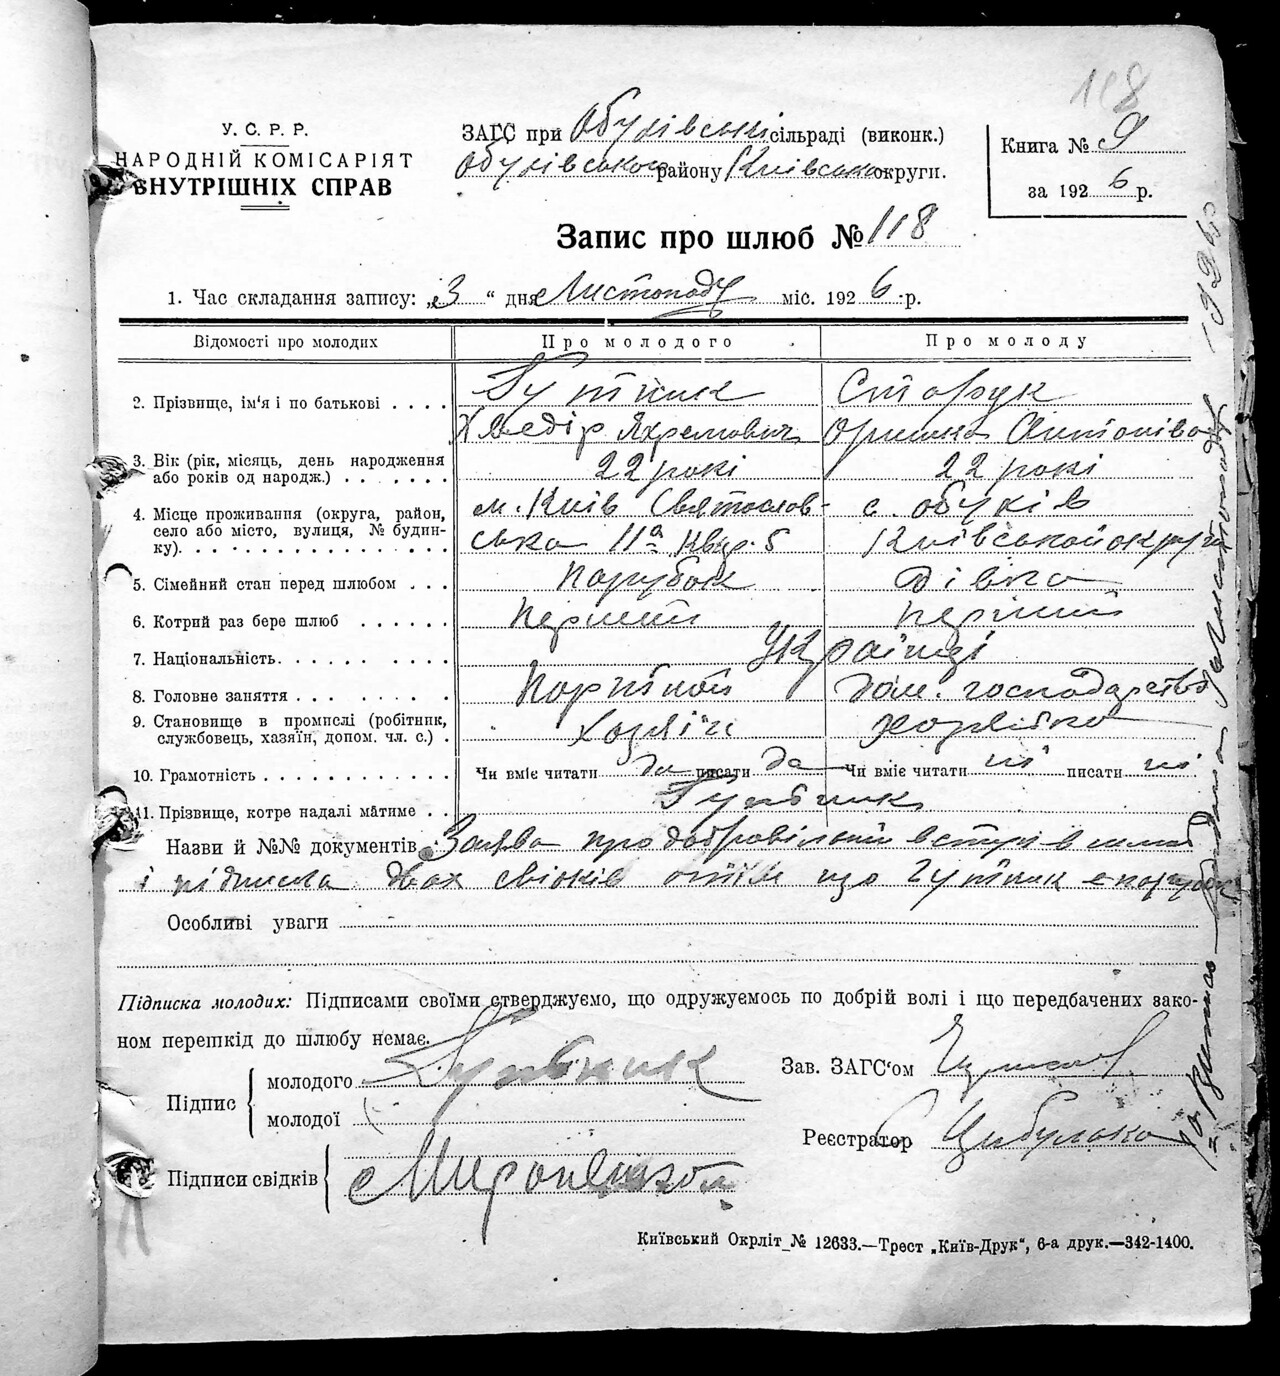 118
У. С. Р. Р.
НАРОДНІЙ КОМІСАРІЯТ
ВНУТРІШНІХ СПРАВ
ЗАГС при Обухівській сільраді (виконк.)
Обухівського району Київської округи.
Книга № 9
за 1926 р.
Запис про шлюб № 118
1. Час складання запису: „3“ дня Листопаду міс. 1926 р.
Відомості про молодих Про молодого Про молоду
2. Прізвище, ім'я і по батькові . . . . Гутник Сторук
Хведір Яхремович Оришка Антонівна
3. Вік (рік, місяць, день народження 22 рокі 22 рокі
або років од народж.) . . . . . . .
4. Місце проживання (округа, район, м. Київ Святослов- с. Обухів
село або місто, вулиця, № будин- ська 11а кварт. 5 Київської округи
ку). . . . . . . . . . . . . . . .
5. Сімейний стан перед шлюбом . . . Парубок дівка
6. Котрий раз бере шлюб . . . . . . Перший перший
7. Національність. . . . . . . . . . . Українці
8. Головне заняття . . . . . . . . . дом. господарство
9. Становище в промислі (робітник, хазяїн хозяйка
службовець, хазяїн, допом. чл. с.) .
10. Грамотність . . . . . . . . . . . . Чи вміє читати да писати да Чи вміє читати ні писати ні
11. Прізвище, котре надалі матиме . . Гутник
Назви й №№ документів Заява про добровільний вступ в шлюб
і підписка двох свідків о тім що Гутник є парубок
Особливі уваги
Підписка молодих: Підписами своїми стверджуємо, що одружуємось по добрій волі і що передбачених зако-
ном перешкід до шлюбу немає.
Підпис молодого Гутник
молодої
Зав. ЗАГС'ом
Реєстратор Цибулько
Підписи свідків
Київський Окрліт № 12633.—Трест „Київ-Друк“, 6-а друк.—342-1400.